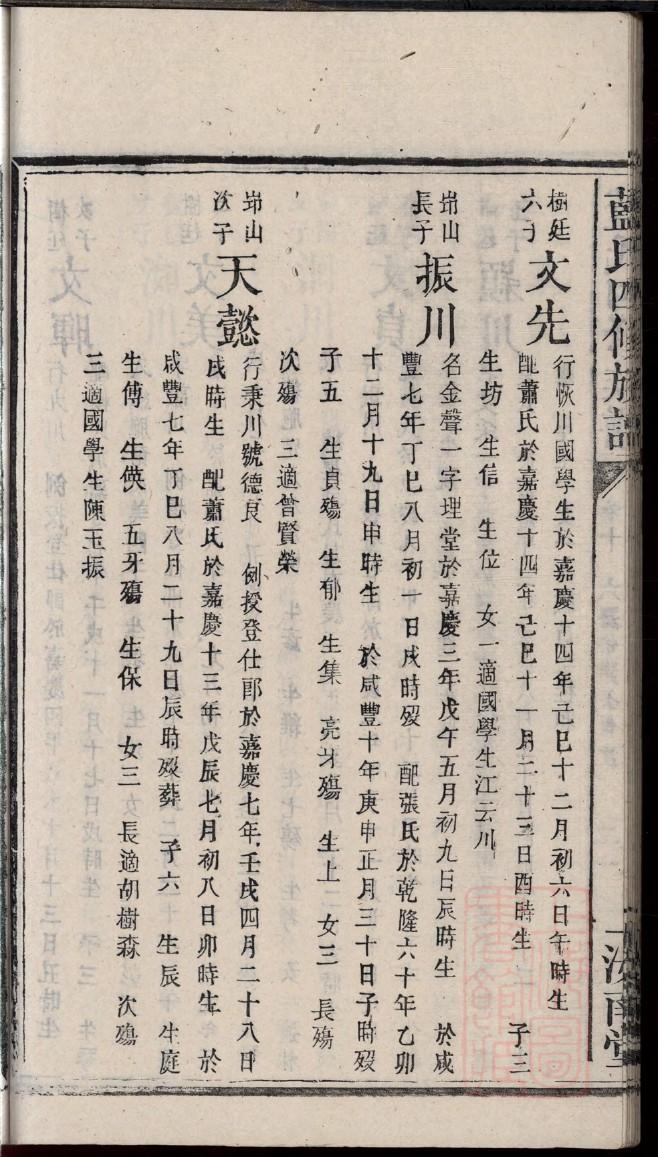 藍氏四修族譜
汝南堂
樹廷
六子
文先
行恢川國學生於嘉慶十四年己巳十二月初六日午時生
配蕭氏於嘉慶十四年己巳十一月二十三日酉時生 子三
生坊 生信 生位 女一適國學生江云川
岇山
長子
振川
名金聲一字理堂於嘉慶三年戊午五月初九日辰時生 於咸
豐七年丁巳八月初一日戌時歿 配張氏於乾隆六十年乙卯
十二月十九日申時生 於咸豐十年庚申正月三十日子時歿
子五 生貞殤 生郁 生集 亮牙殤 生上 女三 長殤
次殤 三適曾賢榮
岇山
次子
天懿
行秉川號德良 例授登仕郎於嘉慶七年壬戌四月二十八日
戌時生 配蕭氏於嘉慶十三年戊辰七月初八日卯時生 於
咸豐七年丁巳八月二十九日辰時歿葬 子六 生辰 生庭
生傅 生偀 五牙殤 生保 女三 長適胡樹森 次殤
三適國學生陳玉振